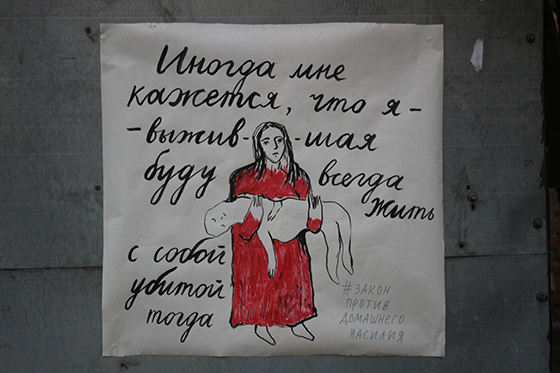 Иногда мне
кажется, что я-
-выжив- -шая
буду всегда
жить
с собой
убитой
тогда
#ЗАКОН
ПРОТИВ
ДОМАШНЕГО
НАСИЛИЯ